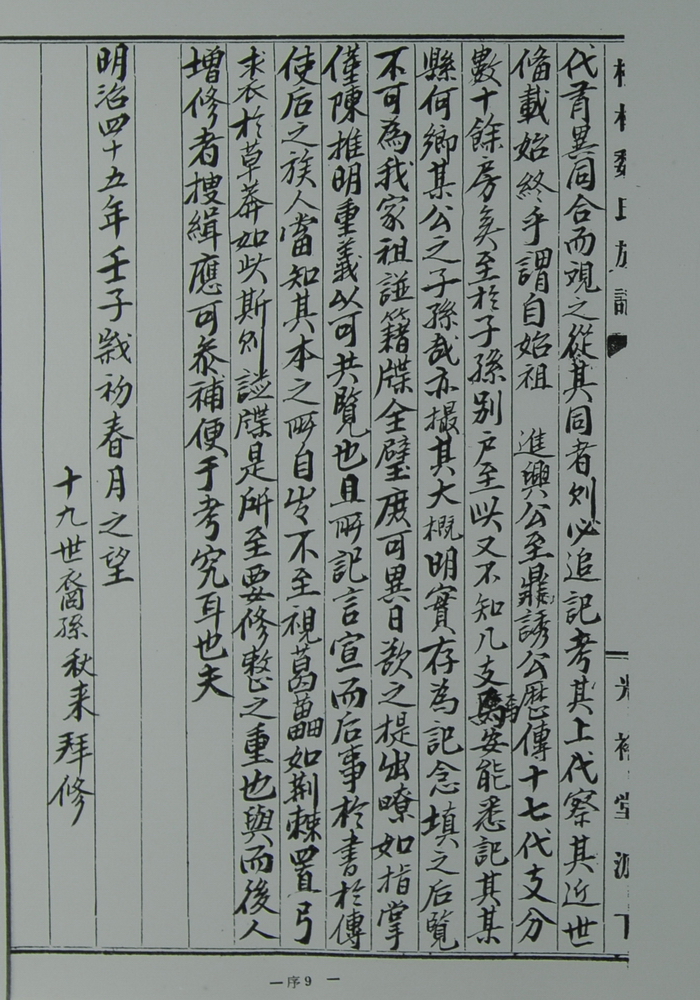 代有異同合而觀之從其同者則必追記考其上代察其近世
備載始終乎謂自始祖　進興公至鼎誘公歷傳十七代支分
數十餘房矣至於子孫別戶至此又不知几支安能悉記其某
縣何鄉某公之子孫哉亦撮其大概明實存為記念填之后覽
不可為我家祖諡籍牒全璧庶可異日欲之提出瞭如指掌
僅陳推明重義以可共覽也且所記言宣而后事於書於傳
使后之族人當知其本之所自出不至視葛藟如荆棘置弓
求衣於草莽如此斯則諡牒是所至要修整之重也與而後人
增修者搜緝應可叅補便于考究耳也夫
明治四十五年壬子歲初春月之望
十九世裔孫秋来拜修
一序9一